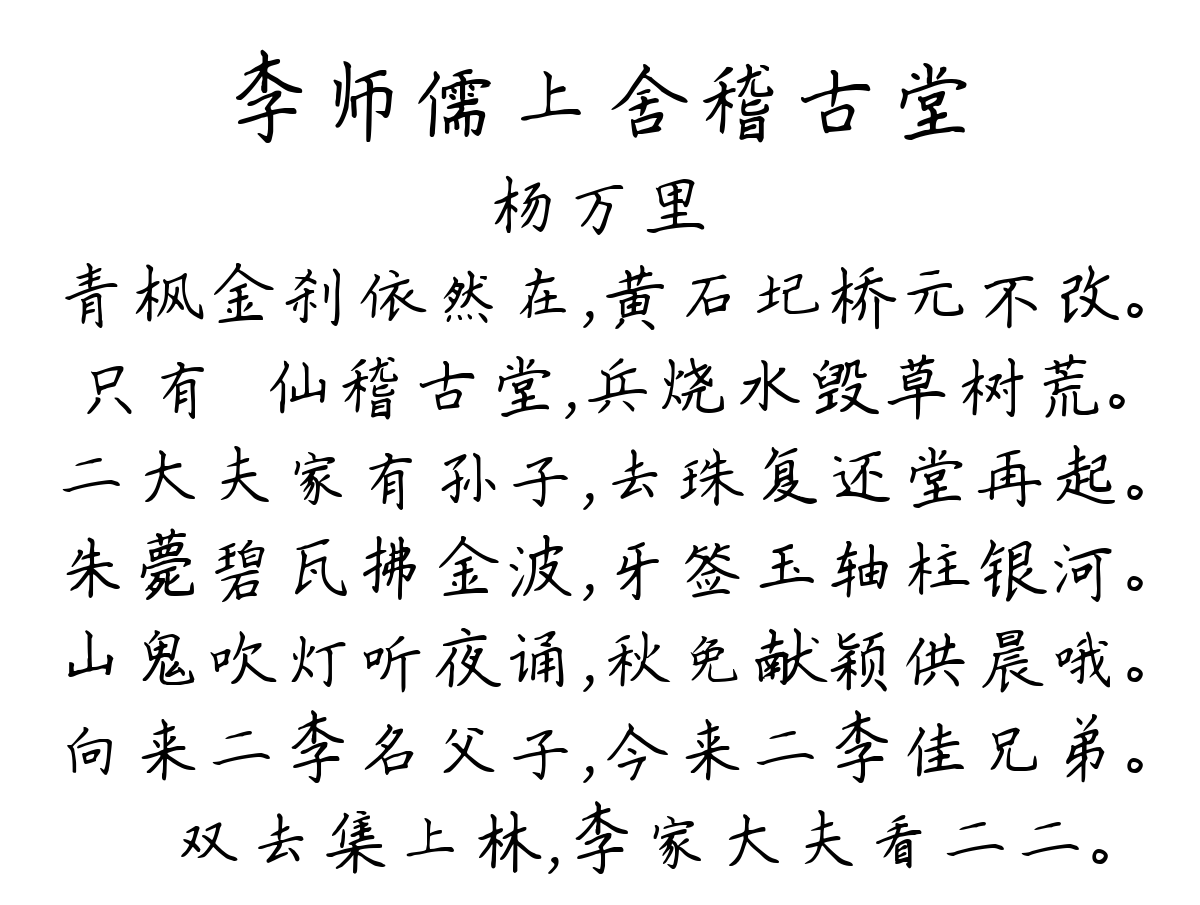 李师儒上舍稽古堂
杨万里
青枫金刹依然在,黄石圮桥元不改。
只有 仙稽古堂,兵烧水毁草树荒。
二大夫家有孙子,去珠复还堂再起。
朱甍碧瓦拂金波,牙签玉轴柱银河。
山鬼吹灯听夜诵,秋兔献颖供晨哦。
向来二李名父子,今来二李佳兄弟。
双去集上林,李家大夫看二二。